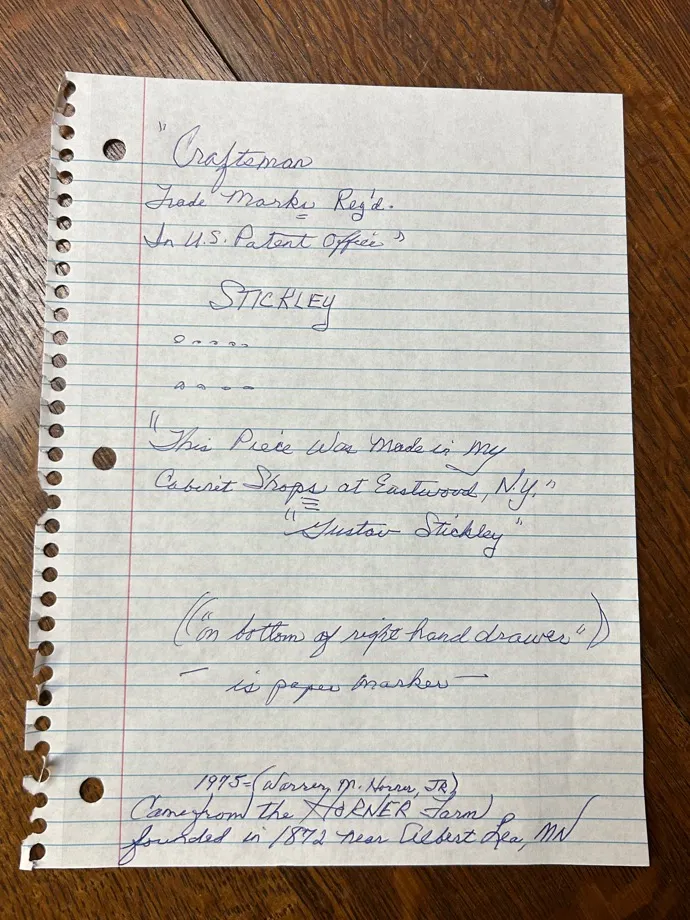 "Craftsman
Trade Marks Reg'd.
In U.S. Patent Office"
STICKLEY
"This Piece Was Made in my
Cabinet Shops at Eastwood, N.Y."
"Gustav Stickley"
(("on bottom of right hand drawer"))
— is paper marker —
1975=(Warren M. Horner, JR)
Came from the HORNER Farm
founded in 1872 near Albert Lea, MN